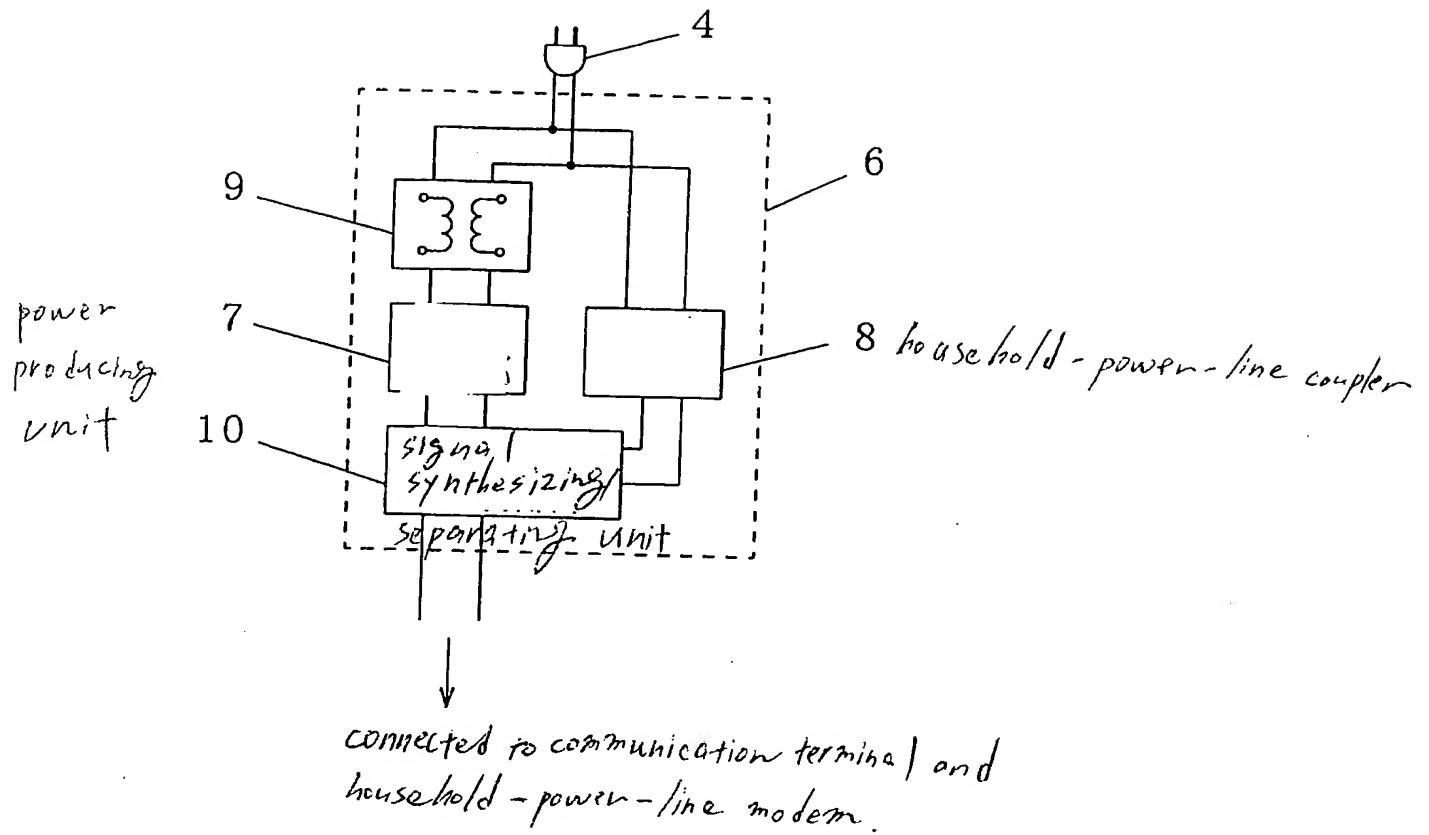 4
6
9
power
producing
unit
7
8 household-power-line coupler
10
signal
synthesizing/
separating unit
connected to communication terminal and
household-power-line modem.